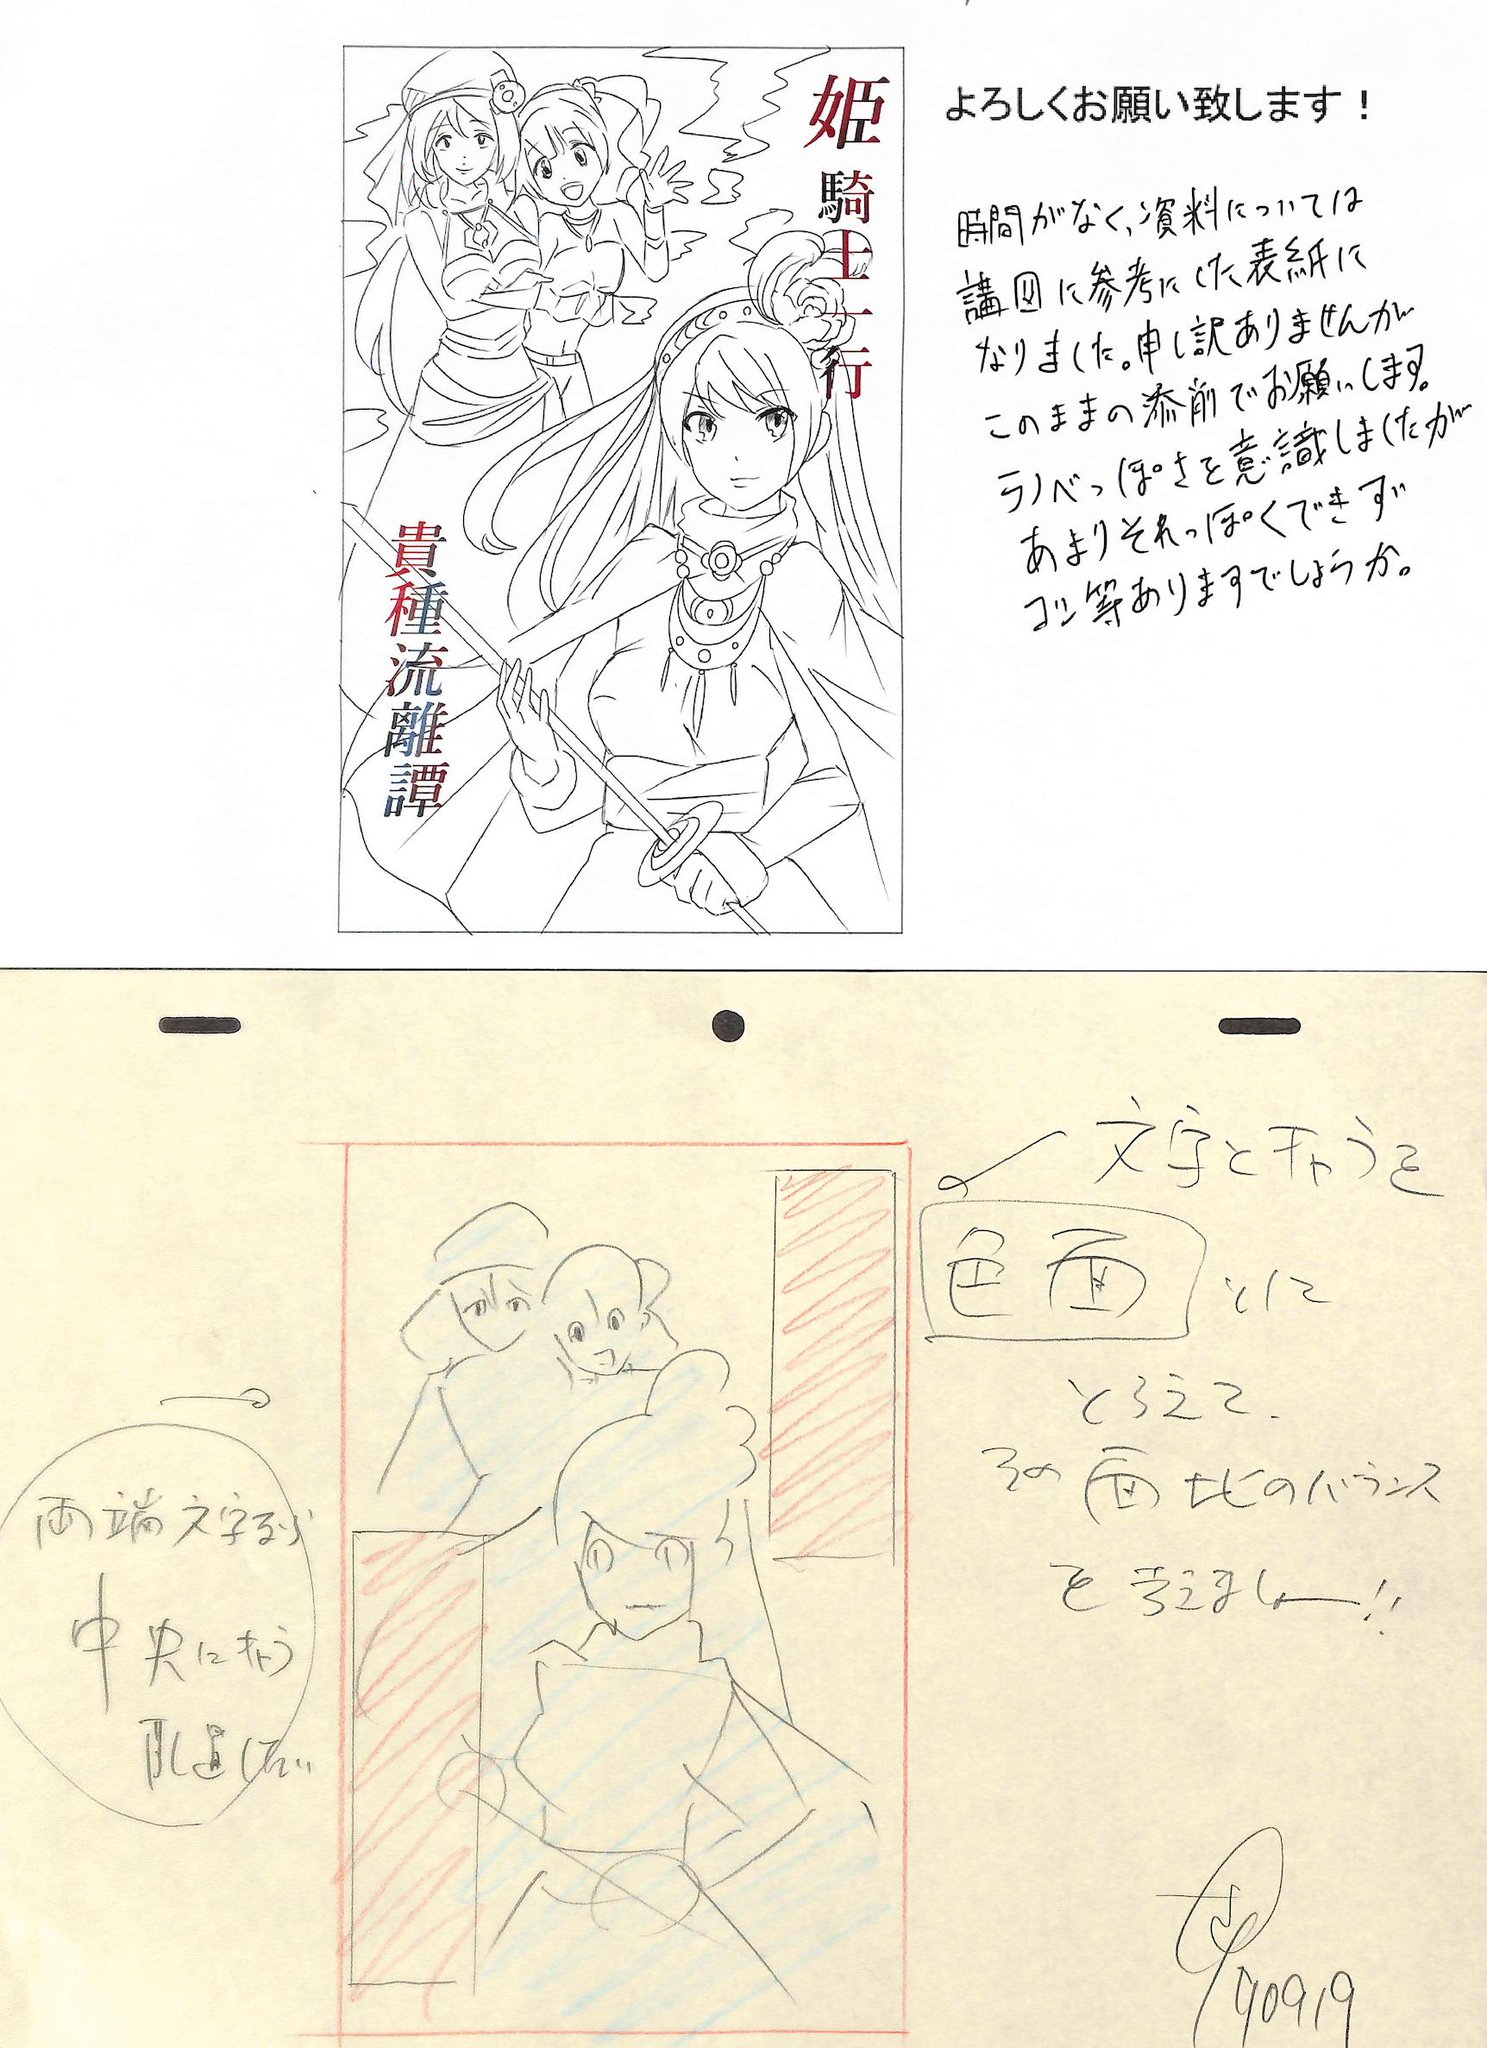 姫騎士一行
貴種流離譚
よろしくお願い致します!
時間がなく、資料については
講図に参考にした表紙に
なりました。申し訳ありませんが
このままの添削でお願いします。
ラノベっぽさを意識しましたが
あまりそれっぽくできず
コツ等ありますでしょうか。
文字とキャラを
色面とに
とらえて、
その面比のバランス
を考えましょー!!
両端文字なら
中央にキャラ